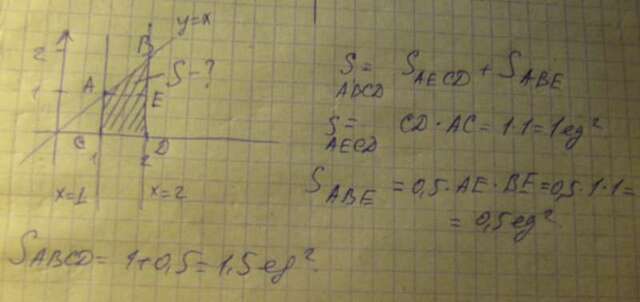 y=x
2
B
S-?
A
1
E
C
D
1
2
x=1
x=2
S ABCD = S AECD + S ABE
S AECD = CD·AC = 1·1 = 1 eg²
S ABE = 0,5·AE·BE = 0,5·1·1 =
= 0,5 eg²
S ABCD = 1+0,5 = 1,5 eg²